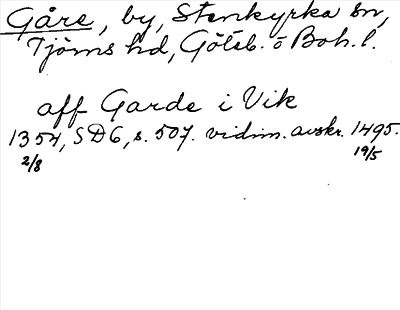 Gåre, by, Stenkyrka sn,
Tjörns hd, Göteb. o Boh. l.
aff Garde i Vik
1354, SD6, s. 507. vidim. avskr. 1495.
2/8 19/5